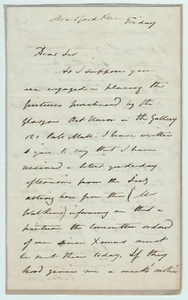 Friday
Dear Sir
As I suppose you
are engaged in placing the
pictures purchased by the
Glasgow Art Union in the Gallery
121 Pall Mall. I have written
to you to say that I have
received a letter yesterday
afternoon from the
acting here for them (Mr
informing me that a
picture the committee order'd
of me Xmas must
be sent there today. If they
had given me a week's notice